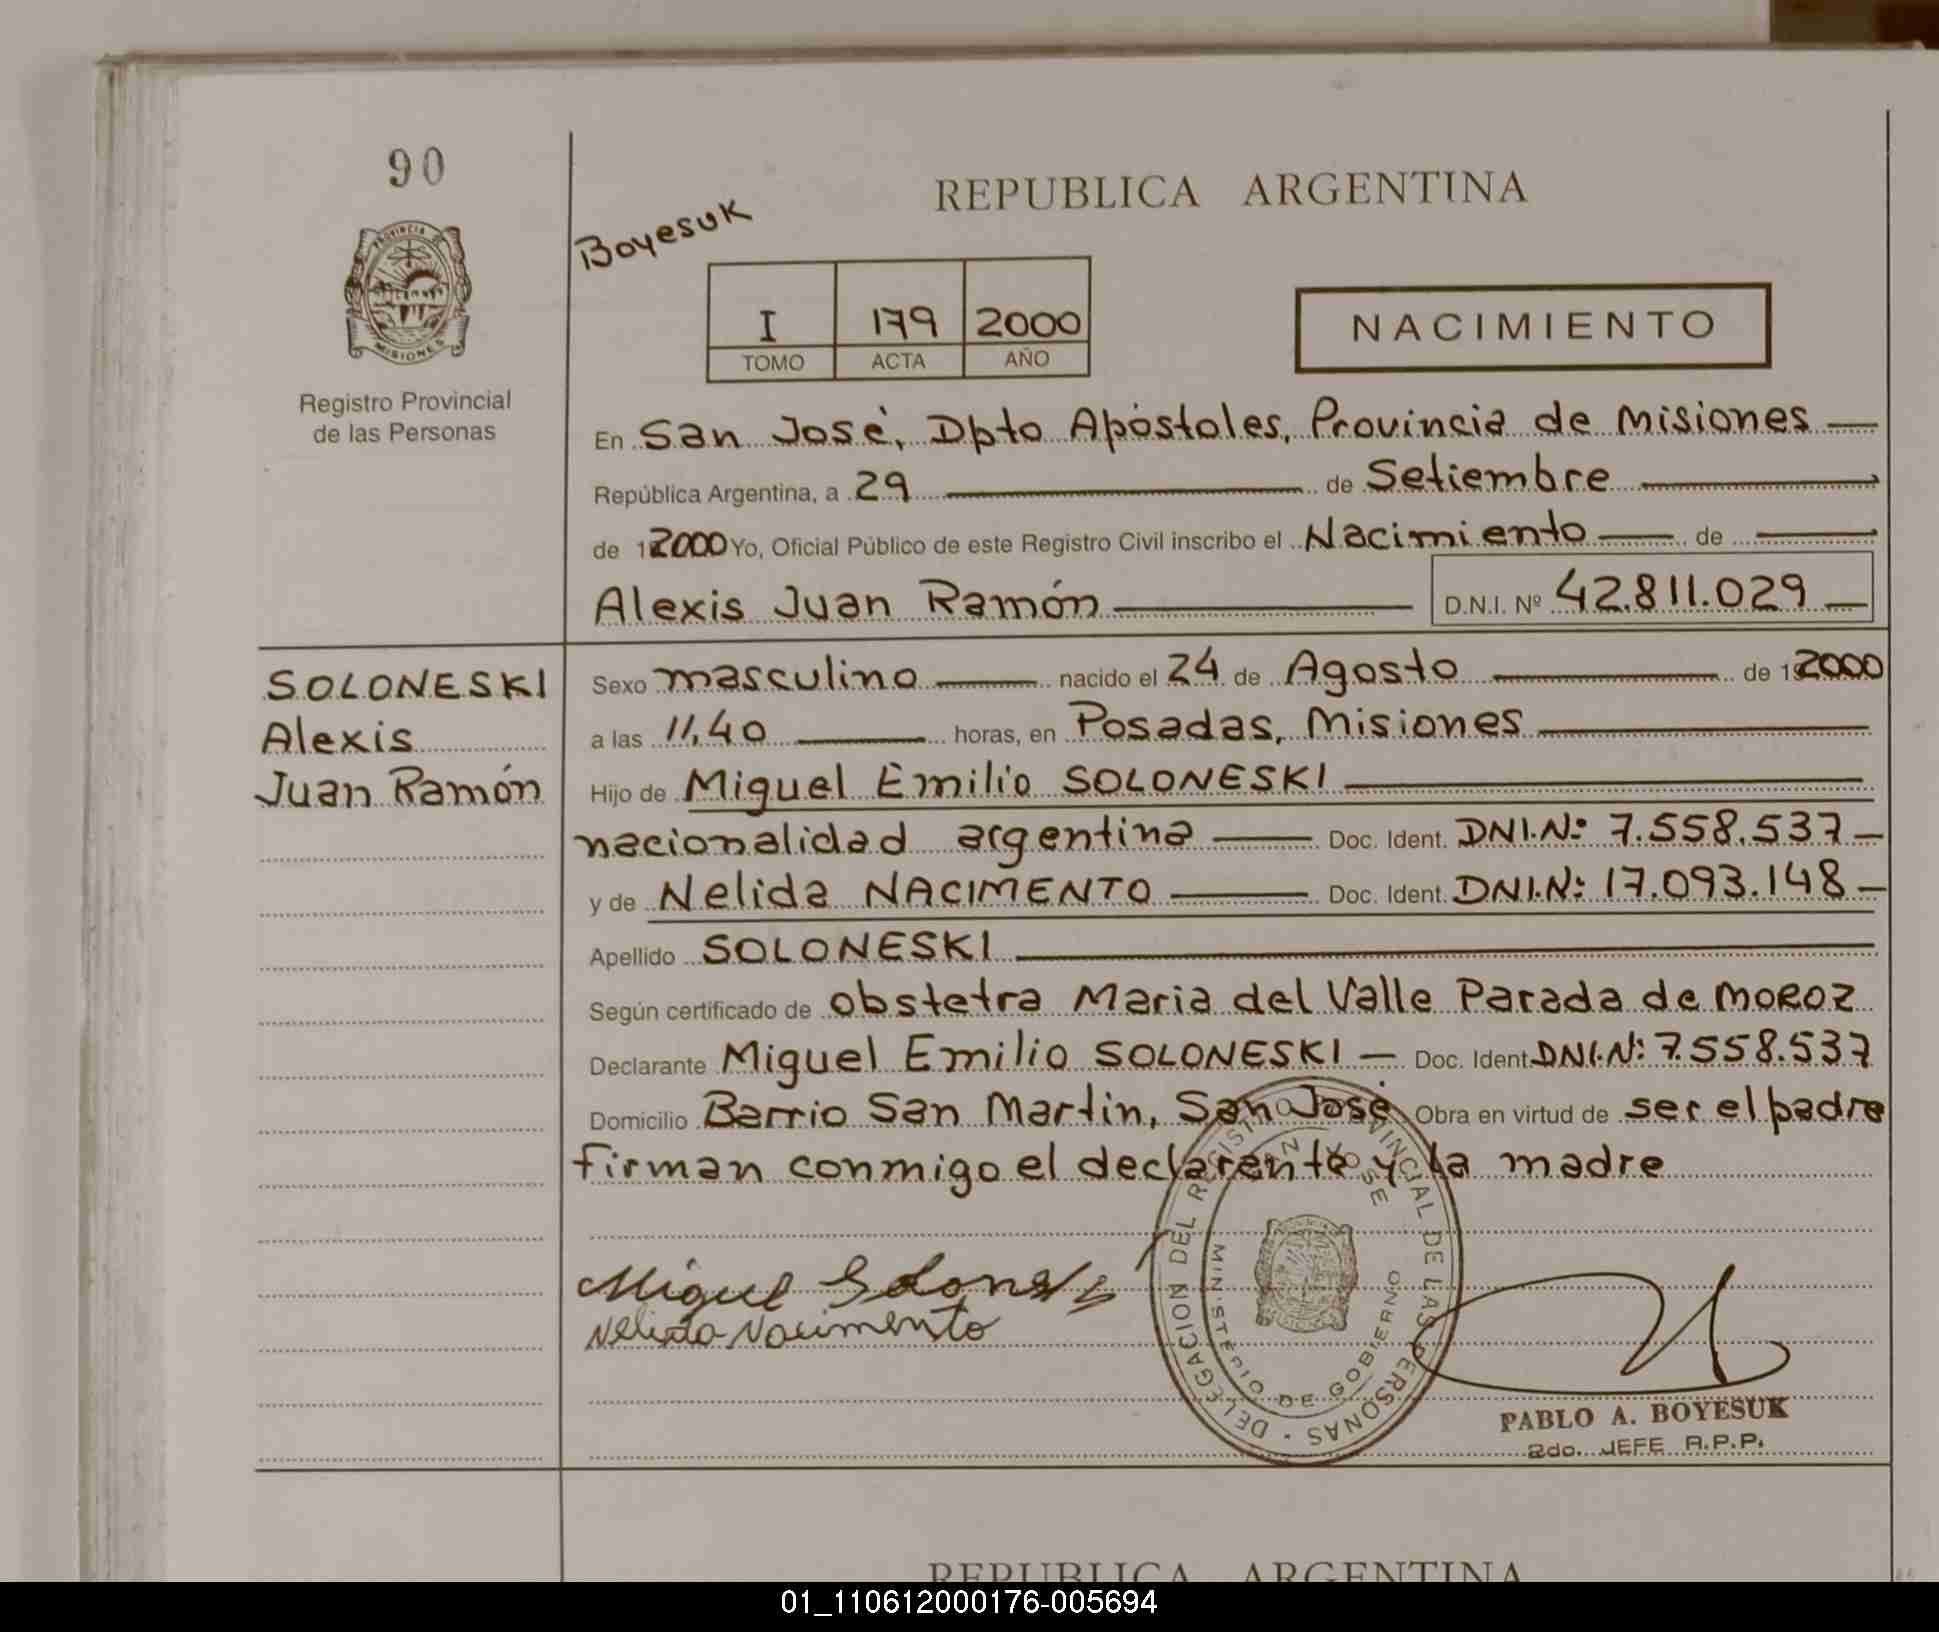 90
REPUBLICA ARGENTINA
Boyesuk
PROVINCIA DE
MISIONES
I 179 2000
TOMO ACTA AÑO
NACIMIENTO
Registro Provincial
de las Personas
En San José, Dpto Apóstoles, Provincia de Misiones
República Argentina, a 29 de Setiembre
de 2000 Yo, Oficial Público de este Registro Civil inscribo el Nacimiento de
Alexis Juan Ramón D.N.I. Nº 42.811.029
SOLONESKI
Alexis
Juan Ramón
Sexo masculino nacido el 24 de Agosto de 2000
a las 11,40 horas, en Posadas, Misiones
Hijo de Miguel Emilio SOLONESKI
nacionalidad argentina Doc. Ident. DNI.Nº 7.558.537
y de Nelida NACIMENTO Doc. Ident. DNI.Nº 17.093.148
Apellido SOLONESKI
Según certificado de obstetra Maria del Valle Parada de MOROZ
Declarante Miguel Emilio SOLONESKI Doc. Ident. DNI.Nº 7.558.537
Domicilio Barrio San Martin, San José. Obra en virtud de ser el padre
firman conmigo el declarante y la madre
Miguel Soloneski
Nelida Nacimento
DELEGACION DEL REGISTRO PROVINCIAL DE LAS PERSONAS
SAN JOSE
MINISTERIO DE GOBIERNO
PABLO A. BOYESUK
2do. JEFE R.P.P.
REPUBLICA ARGENTINA
01_110612000176-005694